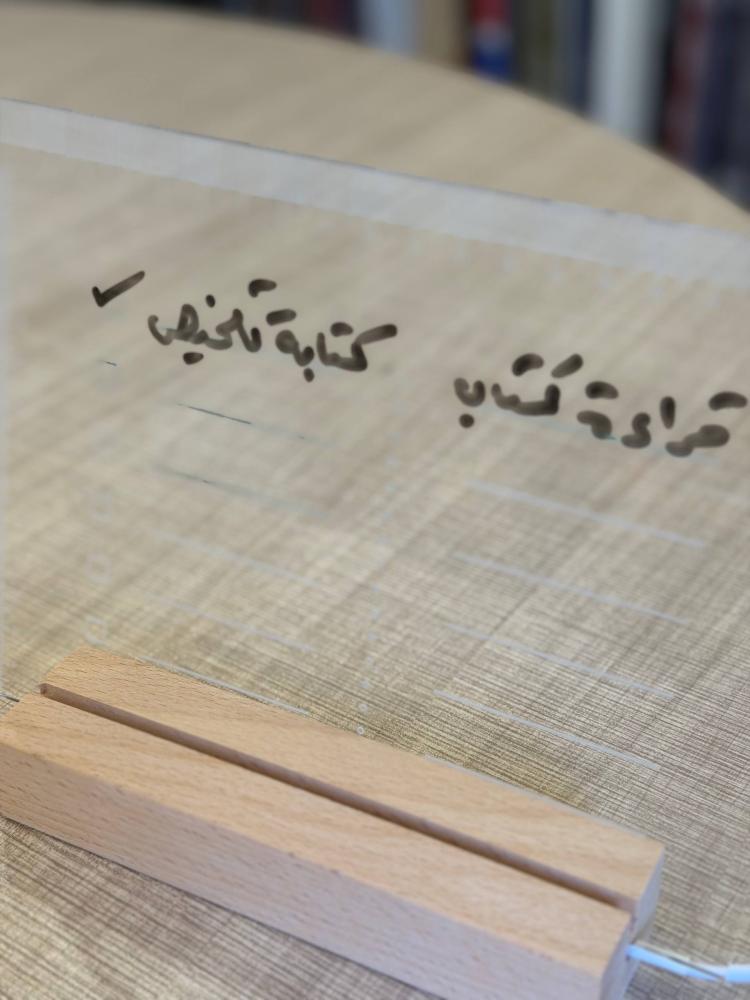 قراءة كتاب
كتابة تلخيص ✓